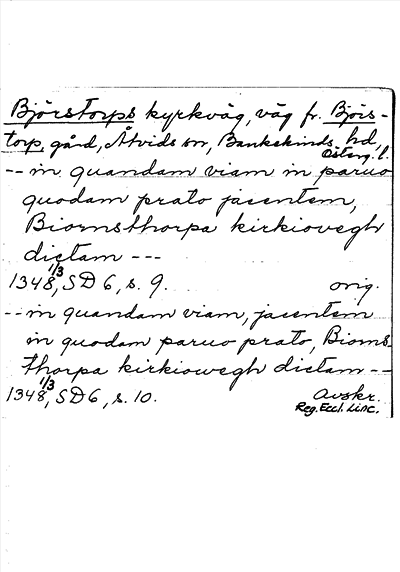 Björstorps kyrkväg, väg fr. Björs-
torp, gård, Åtvids sn, Bankekinds hd,
Österg. l.
-- in quandam viam in paruo
quodam prato jacentem,
Biornsthorpa kirkiovegh
dictam ---
1348 1/3, SD 6, s. 9. orig.
-- in quandam viam, jacentem
in quodam paruo prato, Biorns
thorpa kirkiowegh dictam --
1348 1/3, SD 6, s. 10. Avskr.
Reg. Eccl. Linc.